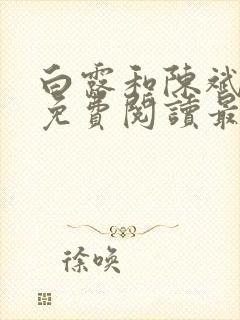 白露和陳斌
免費閱讀最
徐喚